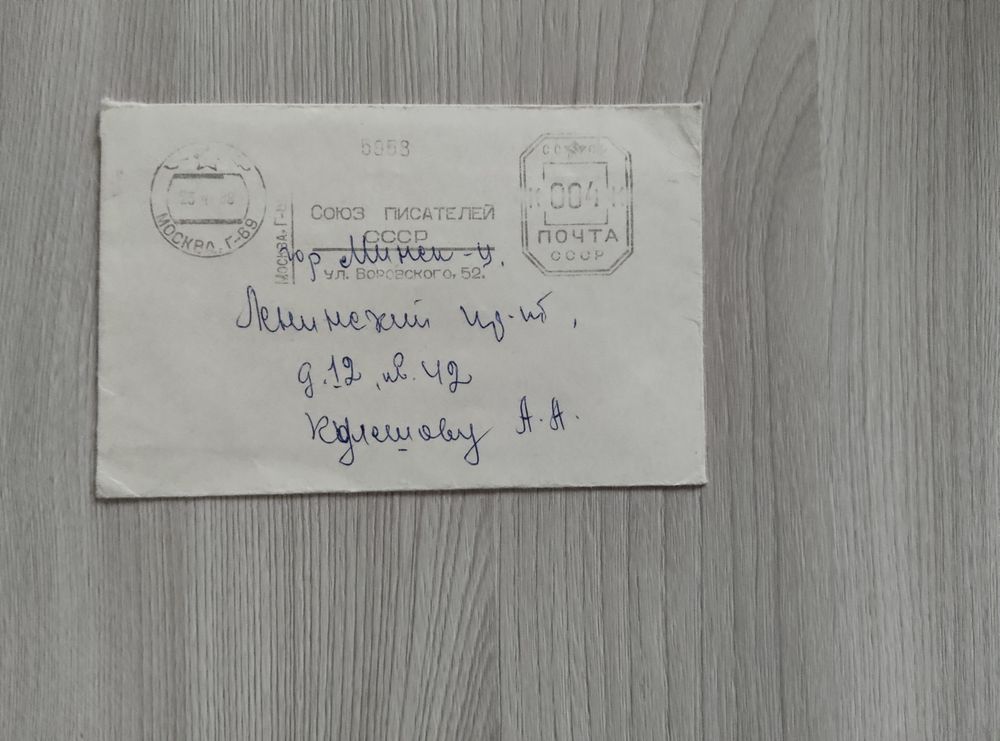 5953
МОСКВА, Г-69
МОСКВА, Г-
СОЮЗ ПИСАТЕЛЕЙ
СССР
УЛ. ВОРОВСКОГО, 52.
К 004 К
ПОЧТА
СССР
гор Минск-ц.
Ленинский пр-кт,
д. 12, кв. 42
Кулешову А. А.